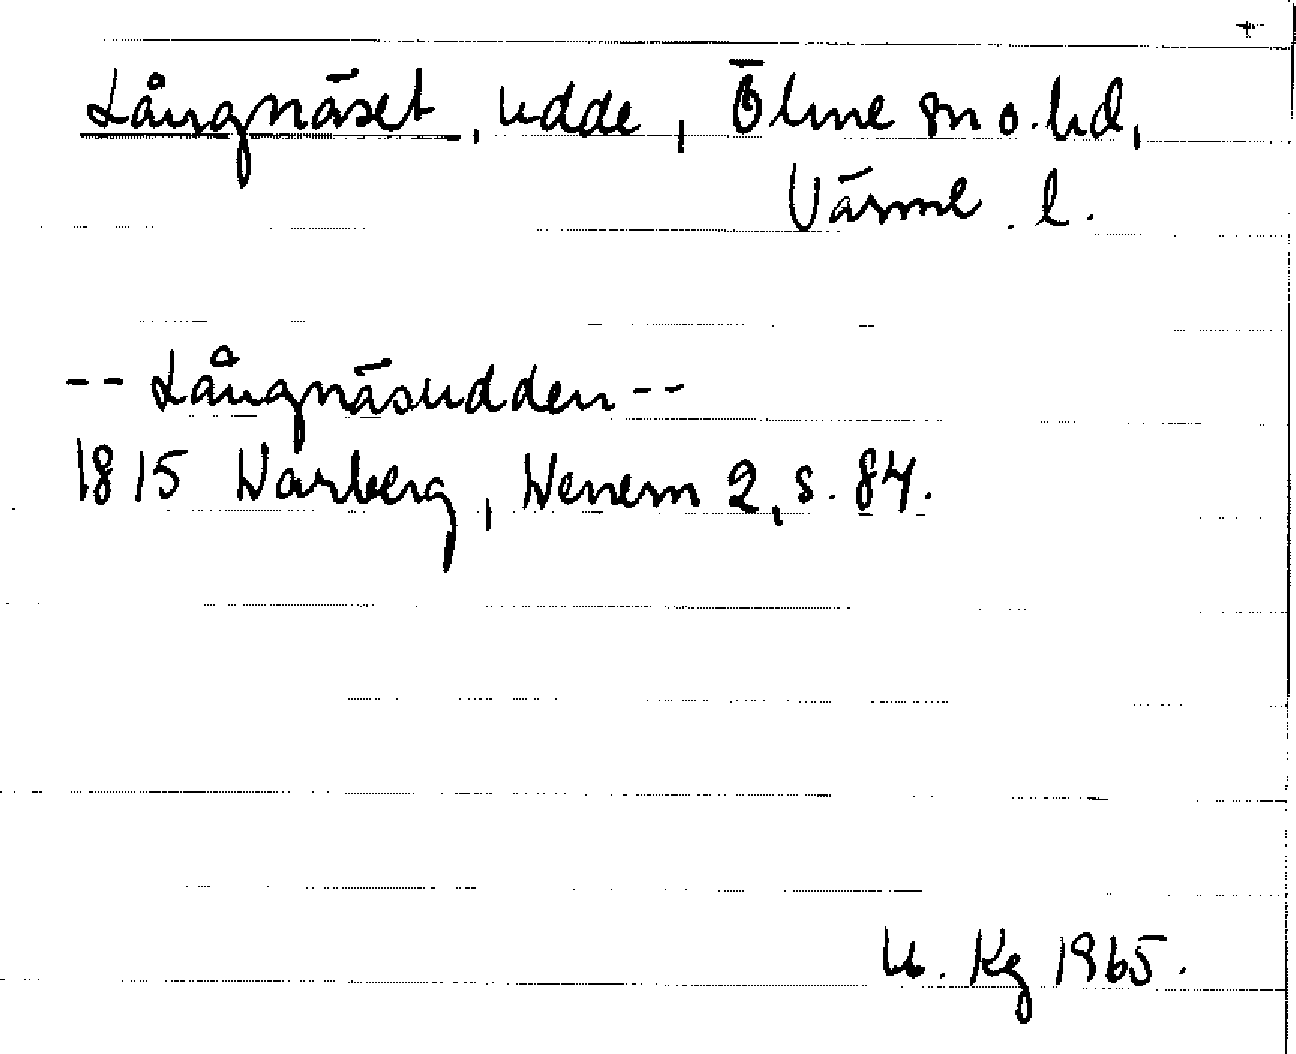 +
Långnäset, udde, Ölme sn o. hd,
Värml. l.
-- Långnäsudden --
1815 Warberg, Wenern 2, s. 84.
U. Kg 1965.